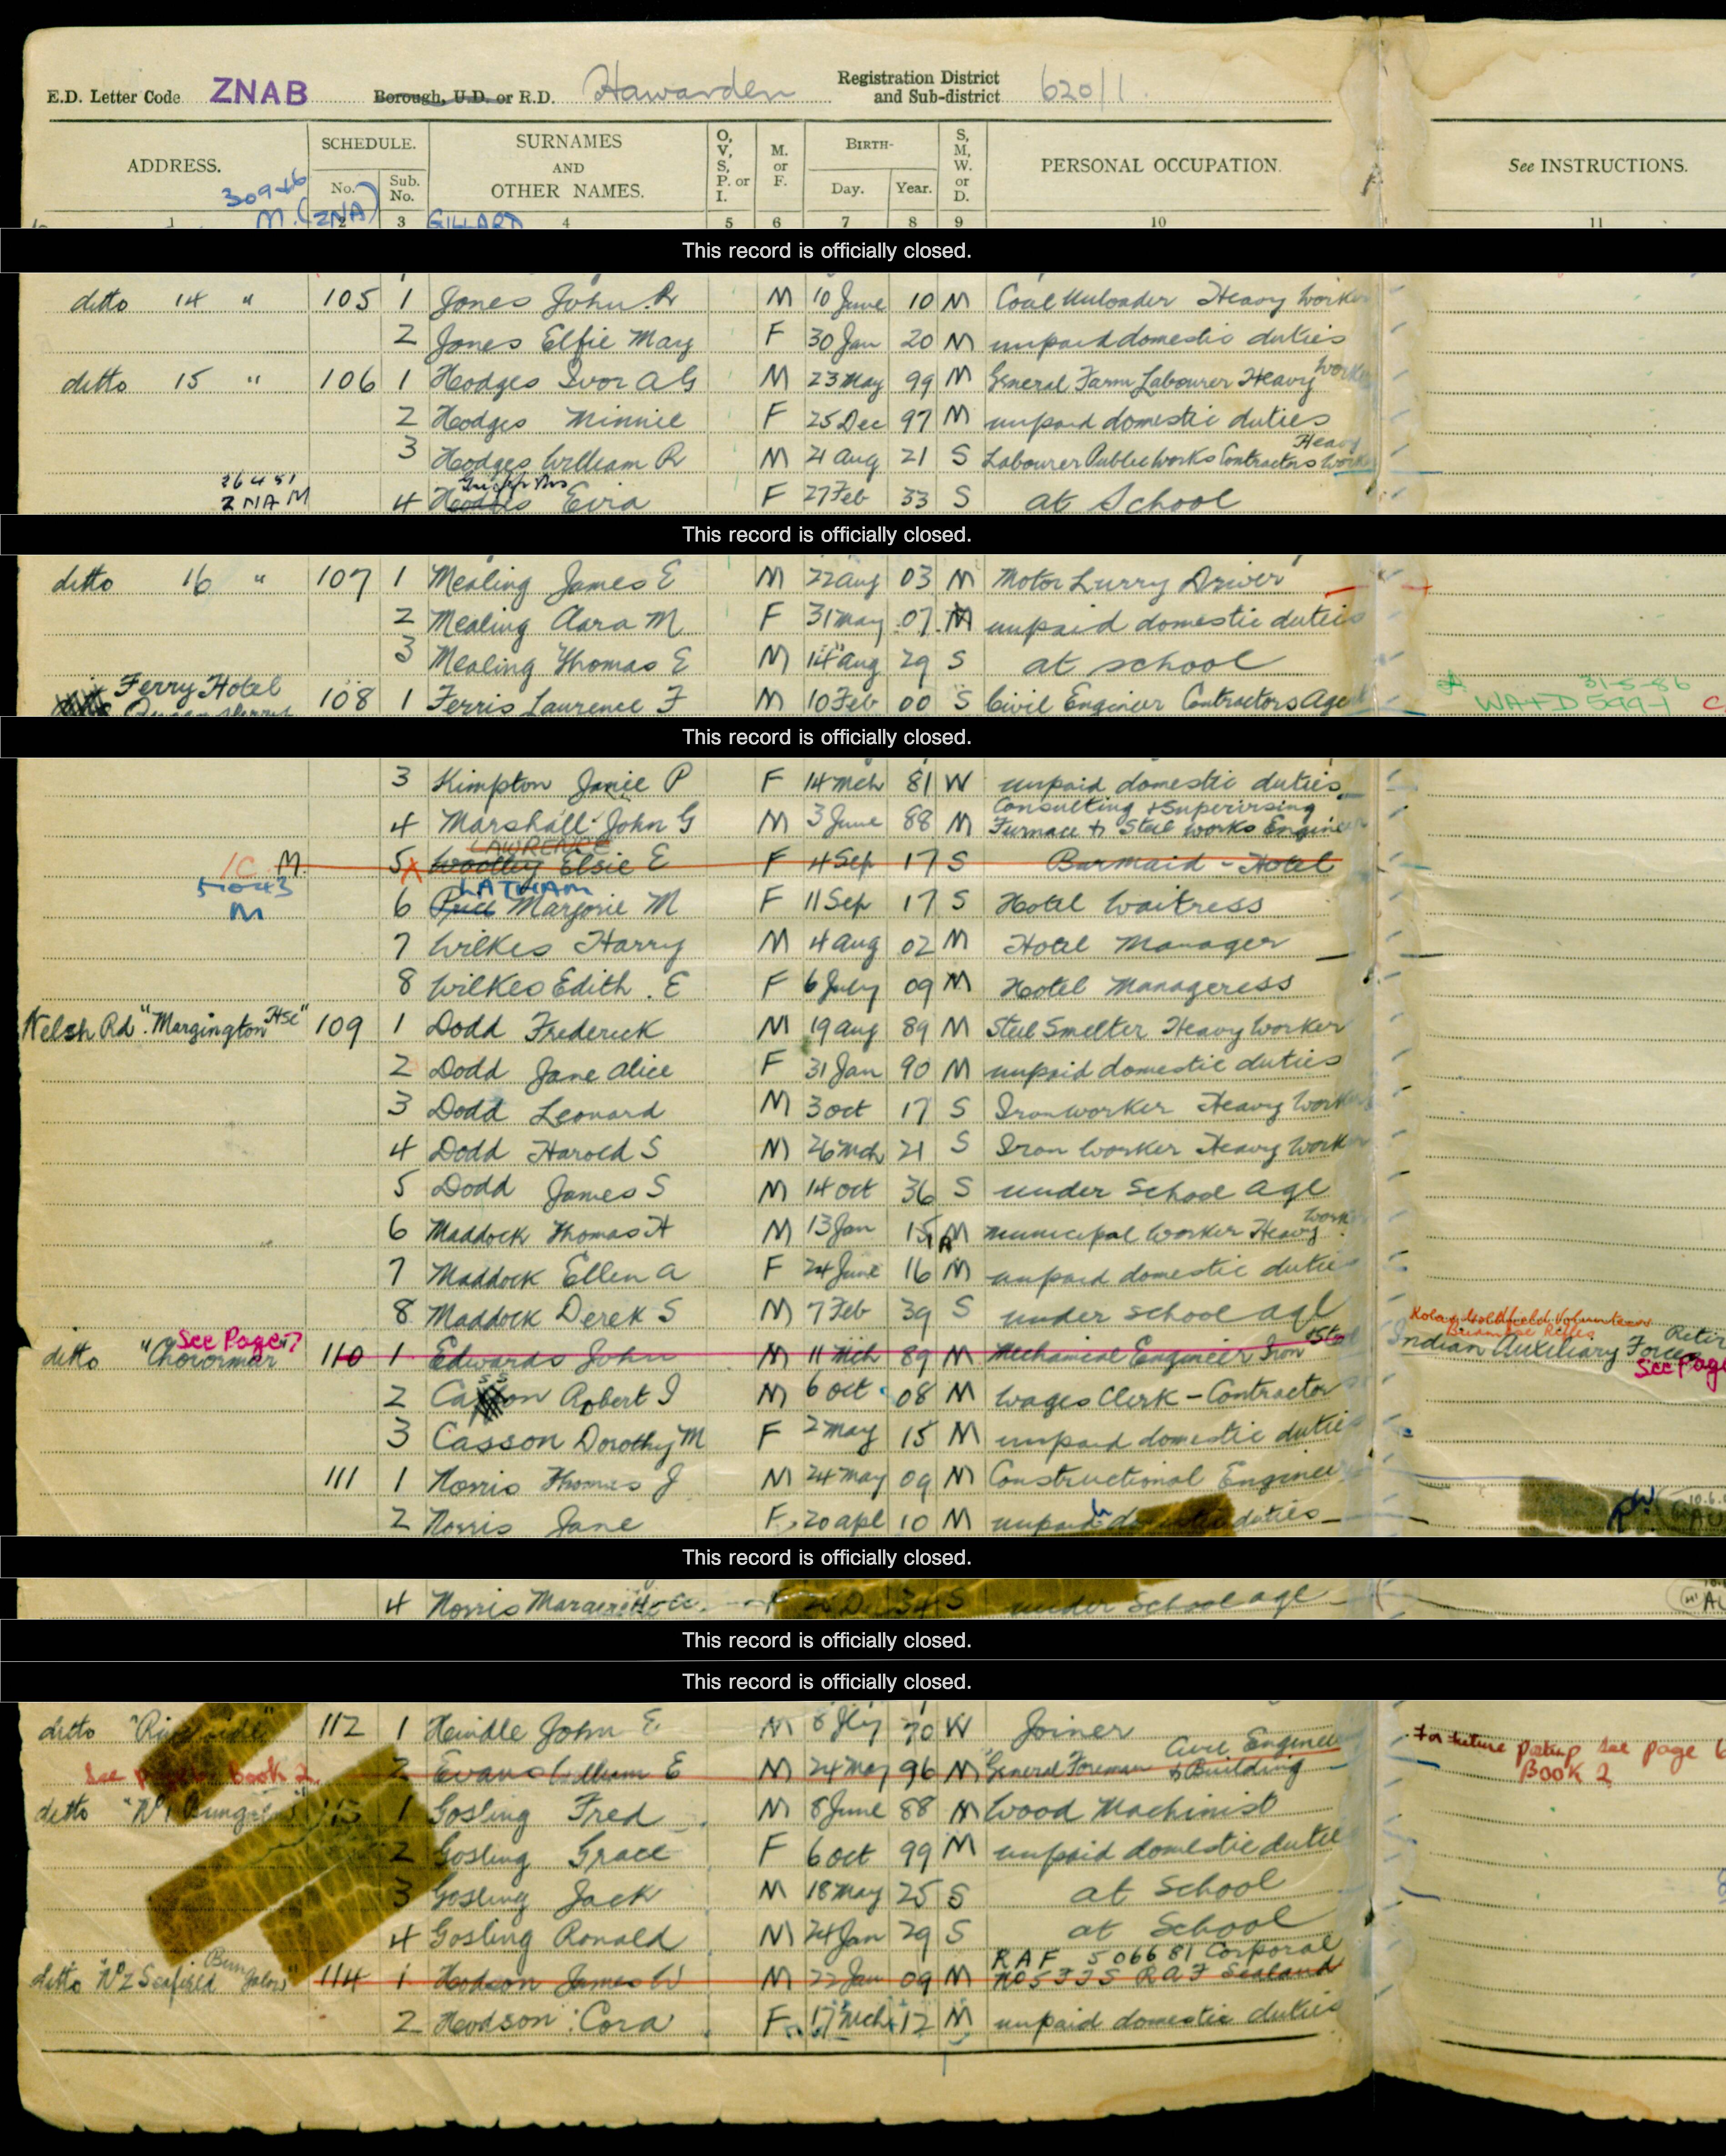 E.D. Letter Code ZNAB Borough, U.D. or R.D. Hawarden Registration District and Sub-district 620/1
ADDRESS. SCHEDULE. No. Sub. No. SURNAMES AND OTHER NAMES. O, V, S, P. or I. M. or F. BIRTH- Day. Year. S, M, W. or D. PERSONAL OCCUPATION. See INSTRUCTIONS.
M. (ZNA) GILLARD
1 2 3 4 5 6 7 8 9 10 11
This record is officially closed.
ditto 14 " 105 1 Jones John R M 10 June 10 M Coal Unloader Heavy Worker
2 Jones Elfie Mary F 30 Jan 20 M unpaid domestic duties
ditto 15 " 106 1 Hodges Ivor A G M 23 May 99 M General Farm Labourer Heavy Worker
2 Hodges Minnie F 25 Dec 97 M unpaid domestic duties
3 Hodges William R M 21 Aug 21 S Labourer Public Works Contractors Heavy Work
ZNA M 4 Hodges Eira F 27 Feb 33 S at School
This record is officially closed.
ditto 16 " 107 1 Mealing James E M 22 Aug 03 M Motor Lurry Driver
2 Mealing Clara M F 31 May 07 M unpaid domestic duties
3 Mealing Thomas E M 14 Aug 29 S at school
Ferry Hotel 108 1 Ferris Laurence F M 10 Feb 00 S Civil Engineer Contractors Agent
31-5-86
This record is officially closed.
3 Kimpton Janie P F 14 Mch 81 W unpaid domestic duties
4 Marshall John G M 3 June 88 M Consulting & Supervising Furnace & Steel Works Engineer
LAWRENCE
M. 5 X Woolley Elsie E F 4 Sep 17 S Barmaid - Hotel
LATHAM
M 6 Price Marjorie M F 11 Sep 17 S Hotel Waitress
7 Wilkes Harry M 4 Aug 02 M Hotel Manager
8 Wilkes Edith . E F 6 July 09 M Hotel Manageress
Welsh Rd "Margington Hse" 109 1 Dodd Frederick M 19 Aug 89 M Steel Smelter Heavy Worker
2 Dodd Jane Alice F 31 Jan 90 M unpaid domestic duties
3 Dodd Leonard M 3 Oct 17 S Ironworker Heavy Worker
4 Dodd Harold S M 26 Mch 21 S Iron Worker Heavy Worker
5 Dodd James S M 14 Oct 36 S under School age
6 Maddock Thomas H M 13 Jan 15 M Municipal Worker Heavy Work
7 Maddock Ellen A F 24 June 16 M unpaid domestic duties
8 Maddock Derek S M 7 Feb 39 S under school age
See Page 7
ditto 110 1 Edwards John M 11 Mch 89 M Mechanical Engineer Iron & Steel Indian Auxiliary Force Retir
See Page
2 Casson Robert I M 6 Oct 08 M Wages Clerk - Contractor
3 Casson Dorothy M F 2 May 15 M unpaid domestic duties
111 1 Norris Thomas J M 24 May 09 M Constructional Engineer
2 Norris Jane F 20 Apl 10 M unpaid domestic duties
This record is officially closed.
4 Norris F 34 S under School age
This record is officially closed.
This record is officially closed.
ditto "Riverside" 112 1 Hindle John E M 8 Jly 70 W Joiner
See Book 2. 2 Evans William E M 24 May 96 M General Foreman Civil Engineer & Building
For future posting see page 6 Book 2
ditto "No 1 Bungalow" 113 1 Gosling Fred M 8 June 88 M Wood Machinist
2 Gosling Grace F 6 Oct 99 M unpaid domestic duties
3 Gosling Jack M 18 May 25 S at School
4 Gosling Ronald M 24 Jan 29 S at School
ditto "No 2 Seafield Bungalow" 114 1 Hodson James W M 22 Jan 09 M RAF 506681 Corporal No 5 FTS RAF Sealand
2 Hodson Cora F 17 Mch 12 M unpaid domestic duties